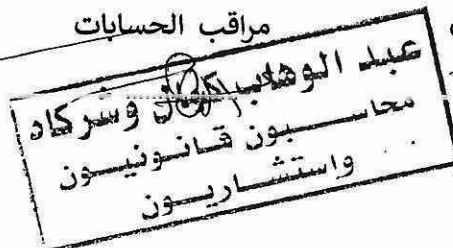 مراقب الحسابات
عبد الوهاب وشركاه
محاسبون قانونيون
واستشاريون